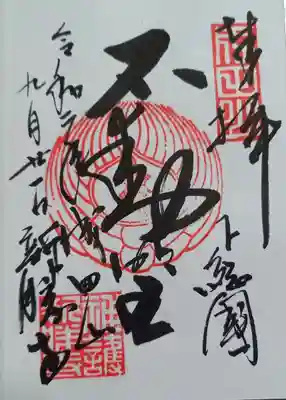 奉拝
下総國
不動明王
令和元年成田山
九月 新勝寺